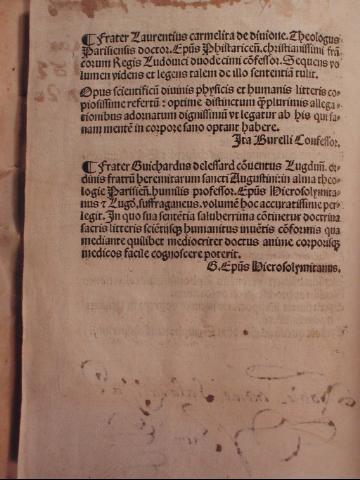 ¶Frater Laurentius carmelita de diuione. Theologus
Parisiensis doctor. Epūs Phistariceñ. christianissimi frā
corum Regis Ludouici duodecimi cōfessor. Sequens vo
lumen videns et legens talem de illo sententiā tulit.
Opus scientificū diuinis physicis et humanis litteris co
piosissime refertū: optime distinctum q̄plurimis allega
tionibus adornatum dignissimū vt legatur ab his qui sa
nam mentē in corpore sano optant habere.
Ita Burelli Confessor.
¶Frater Guichardus de lessard cōuentus Lugduñ. or
dinis fratrū heremitarum sancti Augustini in alma theo
logie Parisieñ. humilis professor. Epūs Hierosolymita
nus ⁊ Lugd. suffraganeus. volumē hoc accuratissime per
legit. In quo sua sentētia saluberrima cōtinetur doctrina
sacris litteris sciētijsq̄ humanitus inuētis cōformis qua
mediante quilibet mediocriter doctus anime corporisq̄
medicos facile cognoscere poterit.
G. Epūs Hierosolymitanus.